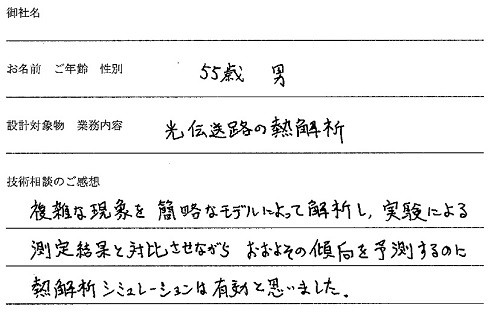 御社名
お名前 ご年齢 性別 55歳 男
設計対象物 業務内容 光伝送路の熱解析
技術相談のご感想
複雑な現象を簡略なモデルによって解析し、実験による
測定結果と対比させながら おおよその傾向を予測するのに
熱解析シミュレーションは有効と思いました。